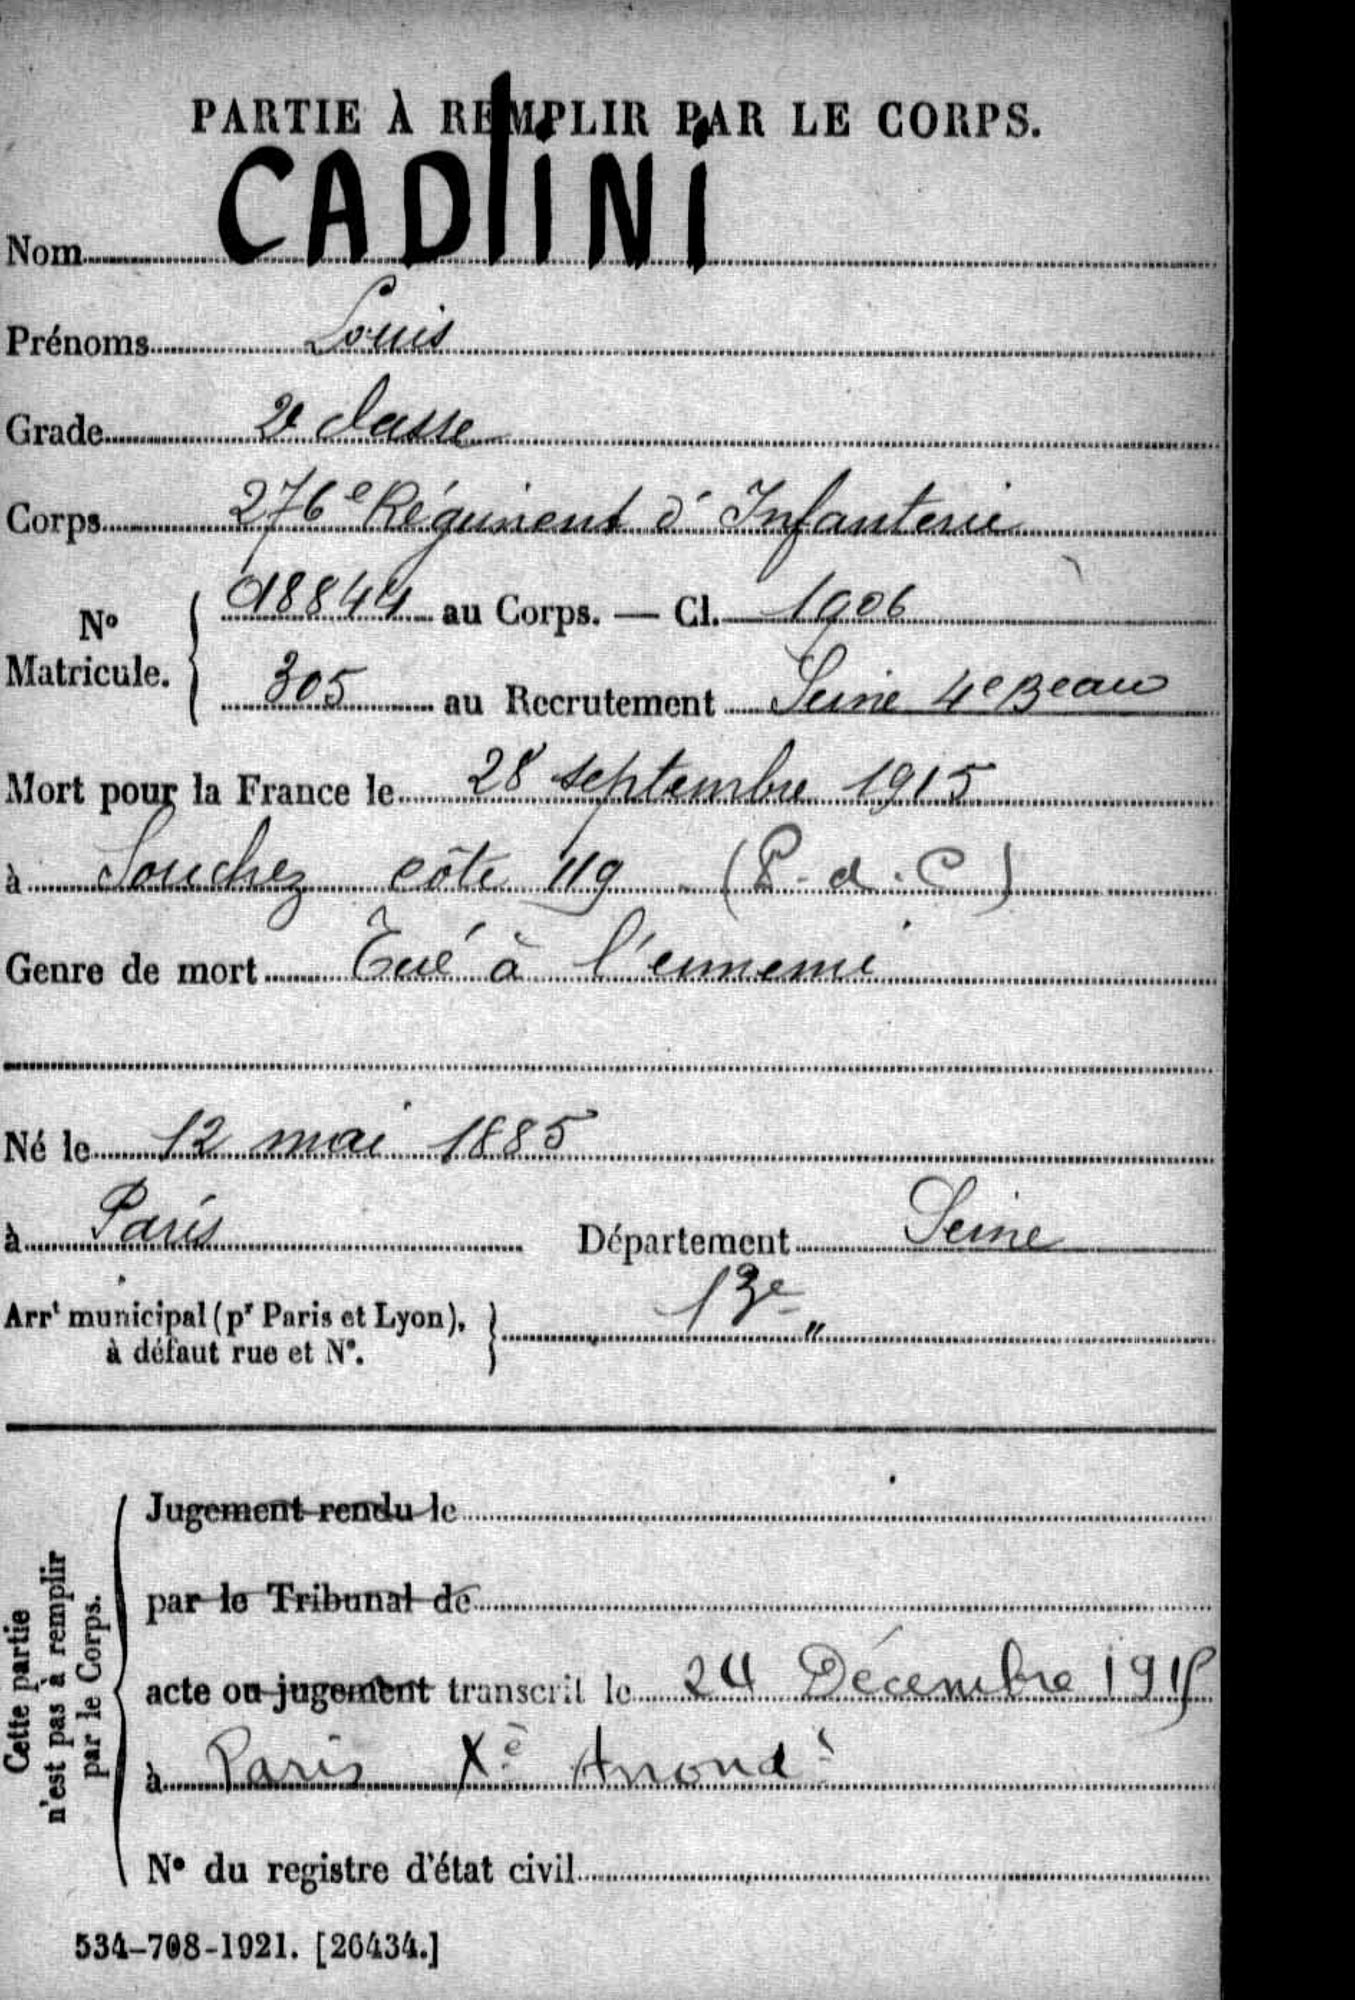 PARTIE À REMPLIR PAR LE CORPS.
Nom CADINI
Prénoms Louis
Grade 2e classe
Corps 276e Régiment d'Infanterie
No Matricule. 018844 au Corps. — Cl. 1906
305 au Recrutement Seine 4e Beau
Mort pour la France le 28 septembre 1915
à Souchez côte 119 (P. d. C)
Genre de mort Tué à l'ennemi
Né le 12 mai 1885
à Paris Département Seine
Arrt municipal (pr Paris et Lyon), à défaut rue et No. 13e "
Cette partie n'est pas à remplir par le Corps.
Jugement rendu le
par le Tribunal de
acte ou jugement transcrit le 24 Décembre 1915
à Paris Xe Arrondt
No du registre d'état civil
534-708-1921. [26434.]